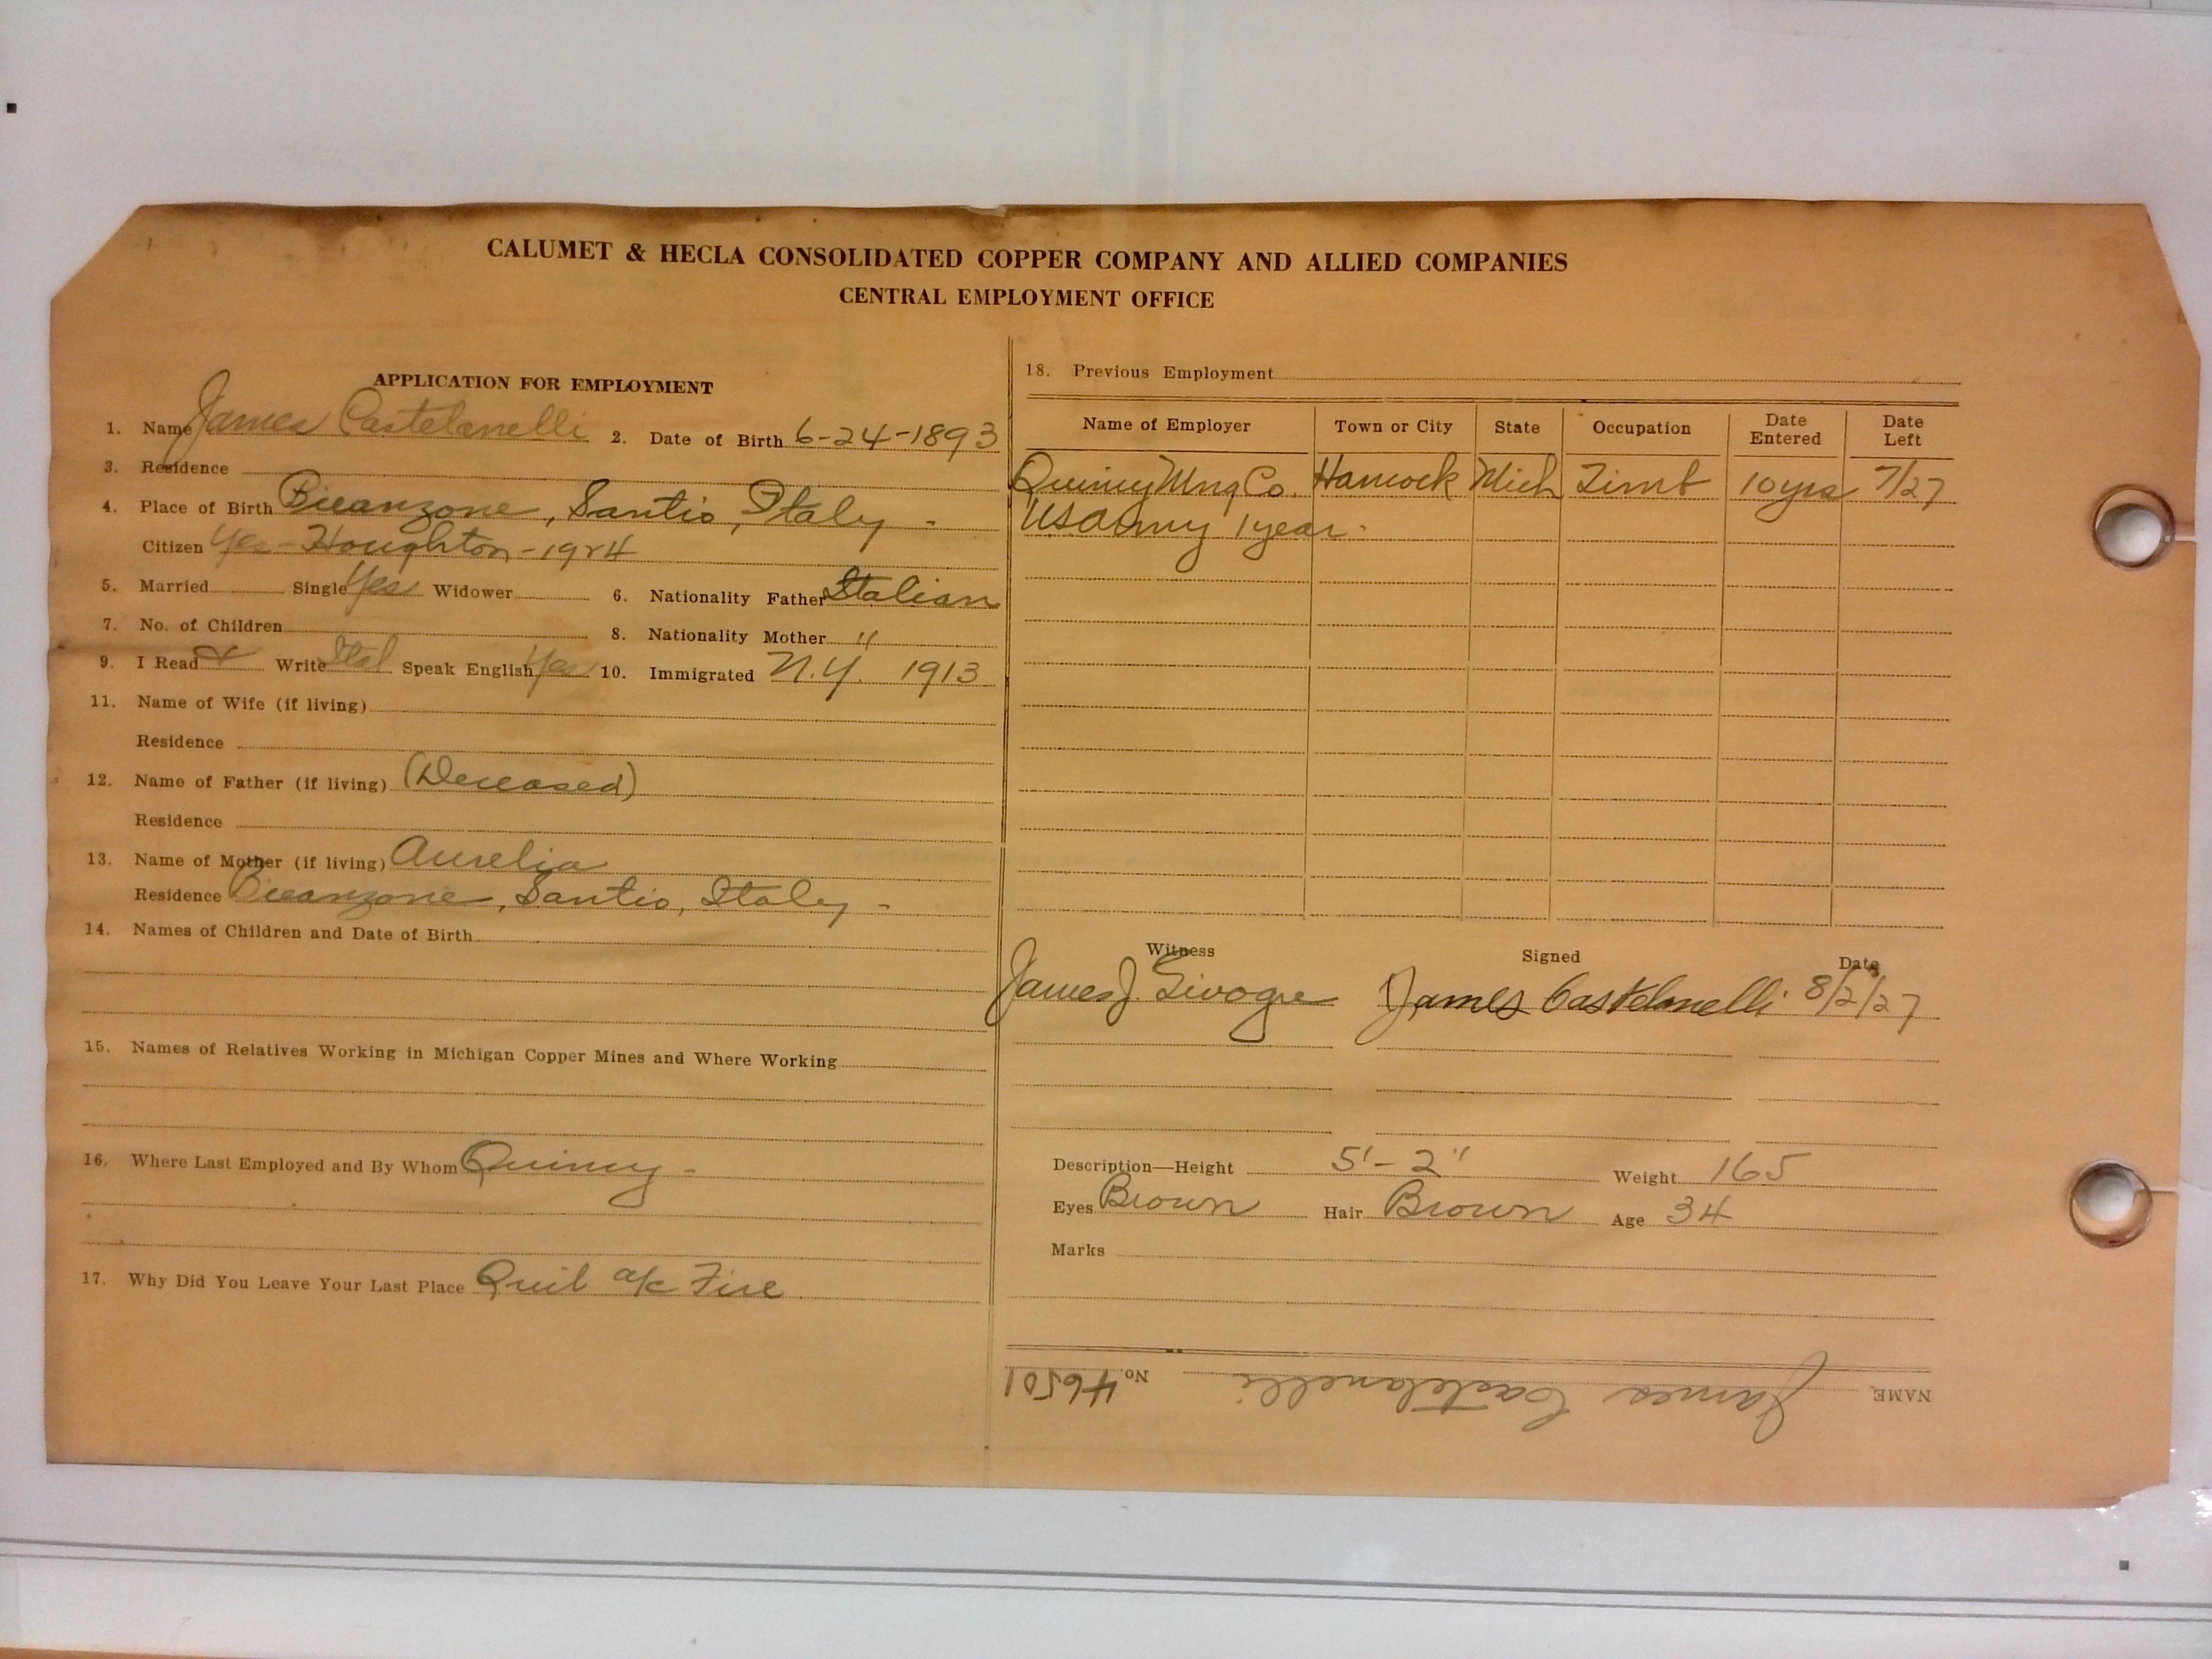 CALUMET & HECLA CONSOLIDATED COPPER COMPANY AND ALLIED COMPANIES
CENTRAL EMPLOYMENT OFFICE
APPLICATION FOR EMPLOYMENT
1. Name James Castelanelli 2. Date of Birth 6-24-1893
3. Residence
4. Place of Birth Bieanzone, Santio, Italy -
Citizen Yes - Houghton - 1924
5. Married Single Yes Widower 6. Nationality Father Italian
7. No. of Children 8. Nationality Mother "
9. I Read & Write Ital Speak English Yes 10. Immigrated N.Y. 1913
11. Name of Wife (if living)
Residence
12. Name of Father (if living) (Deceased)
Residence
13. Name of Mother (if living) Aurelia
Residence Bieanzone, Santio, Italy -
14. Names of Children and Date of Birth
15. Names of Relatives Working in Michigan Copper Mines and Where Working
16. Where Last Employed and By Whom Quincy -
17. Why Did You Leave Your Last Place Quit a/c Fire
18. Previous Employment
Name of Employer Town or City State Occupation Date Entered Date Left
Quincy Mng Co. Hancock Mich Timb 10 yrs 7/27
US Army 1 year.
Witness Signed Date
James J. James Castelanelli 8/2/27
Description—Height 5'-2" Weight 165
Eyes Brown Hair Brown Age 34
Marks
NAME James Castelanelli No. 46501